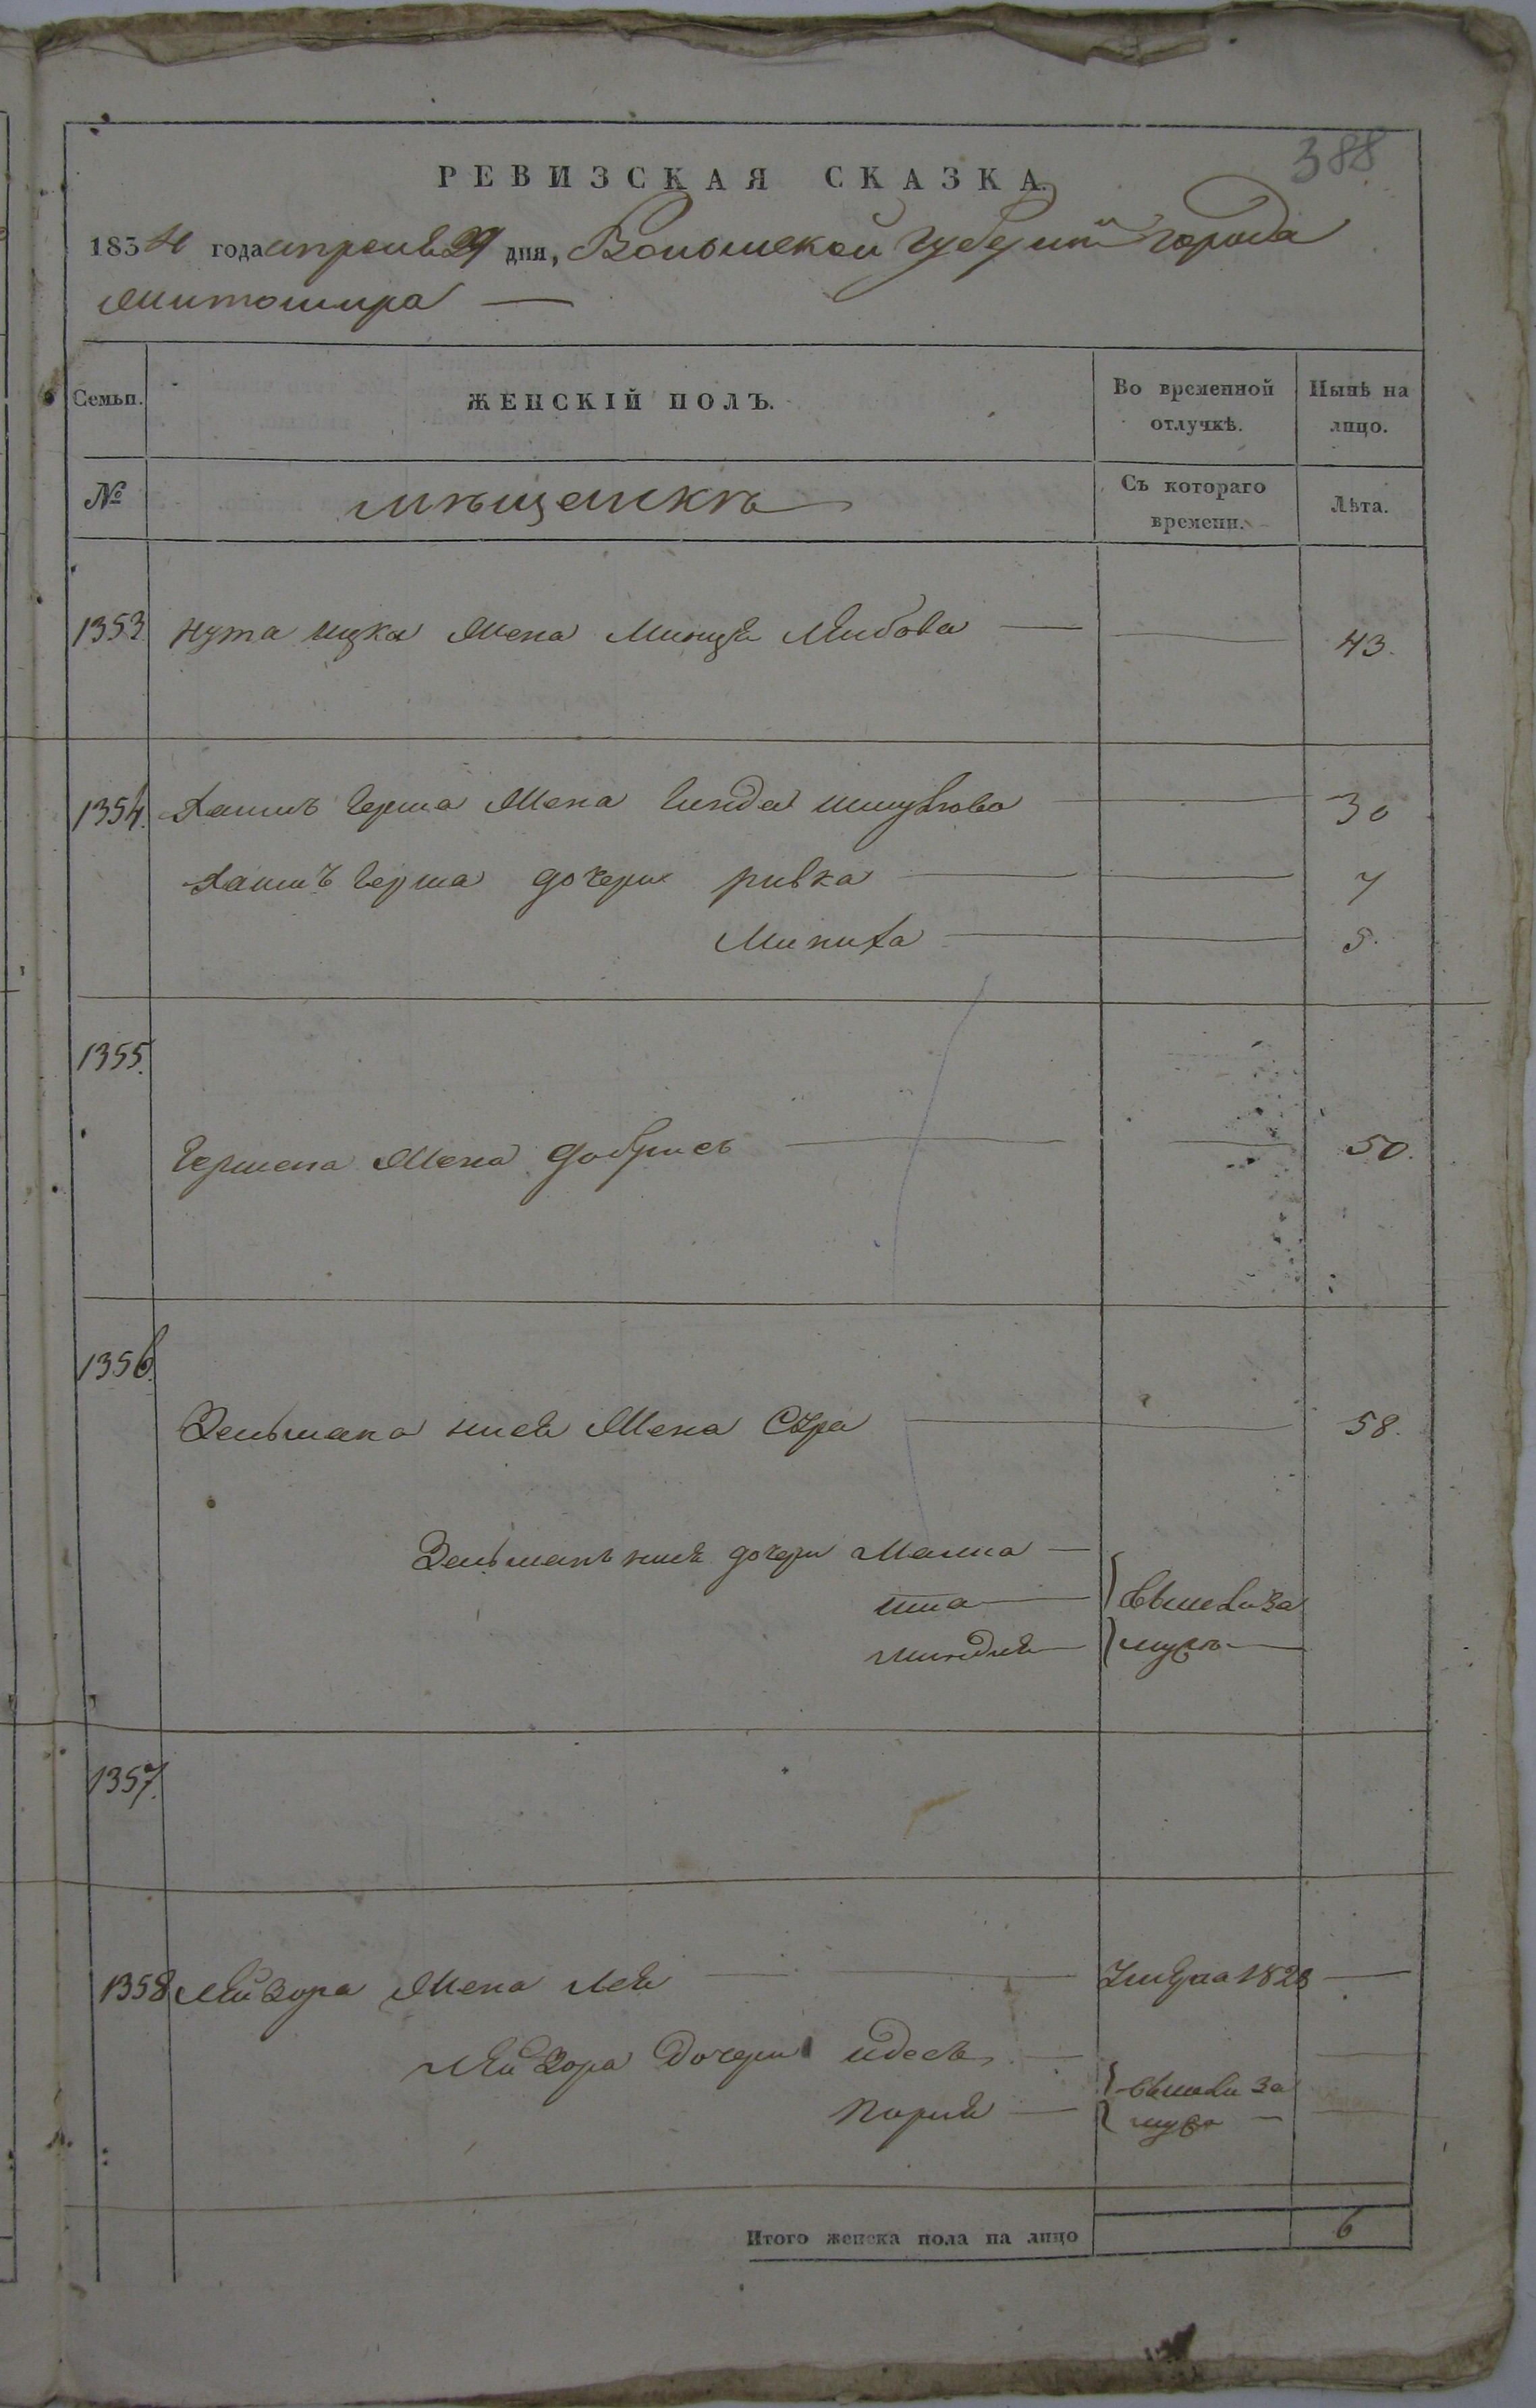 388
РЕВИЗСКАЯ СКАЗКА.
1834 года апреля 29 дня, Волынской Губернии города
Житомира
Семьи. ЖЕНСКІЙ ПОЛЪ. Во временной отлучкѣ. Нынѣ на лицо.
№ мѣщанкѣ Съ котораго времени. Лѣта.
1353 Нута Ицка Жена Лейбова 43.
1354. Хаимъ Герша Жена Шмулова 30
Хаимъ Герша дочери ривка 7
Миниха 5.
1355.
Гершена Жена добрись 50.
1356.
Зельмана Жена Сура 58.
Зельманъ дочери Малка
ита вышли за
миндля мужъ
1357.
1358 Лейзора Жена Лея 1828
Лейзора Дочери идесь
вышли за
мужъ
Итого женска пола на лицо 6